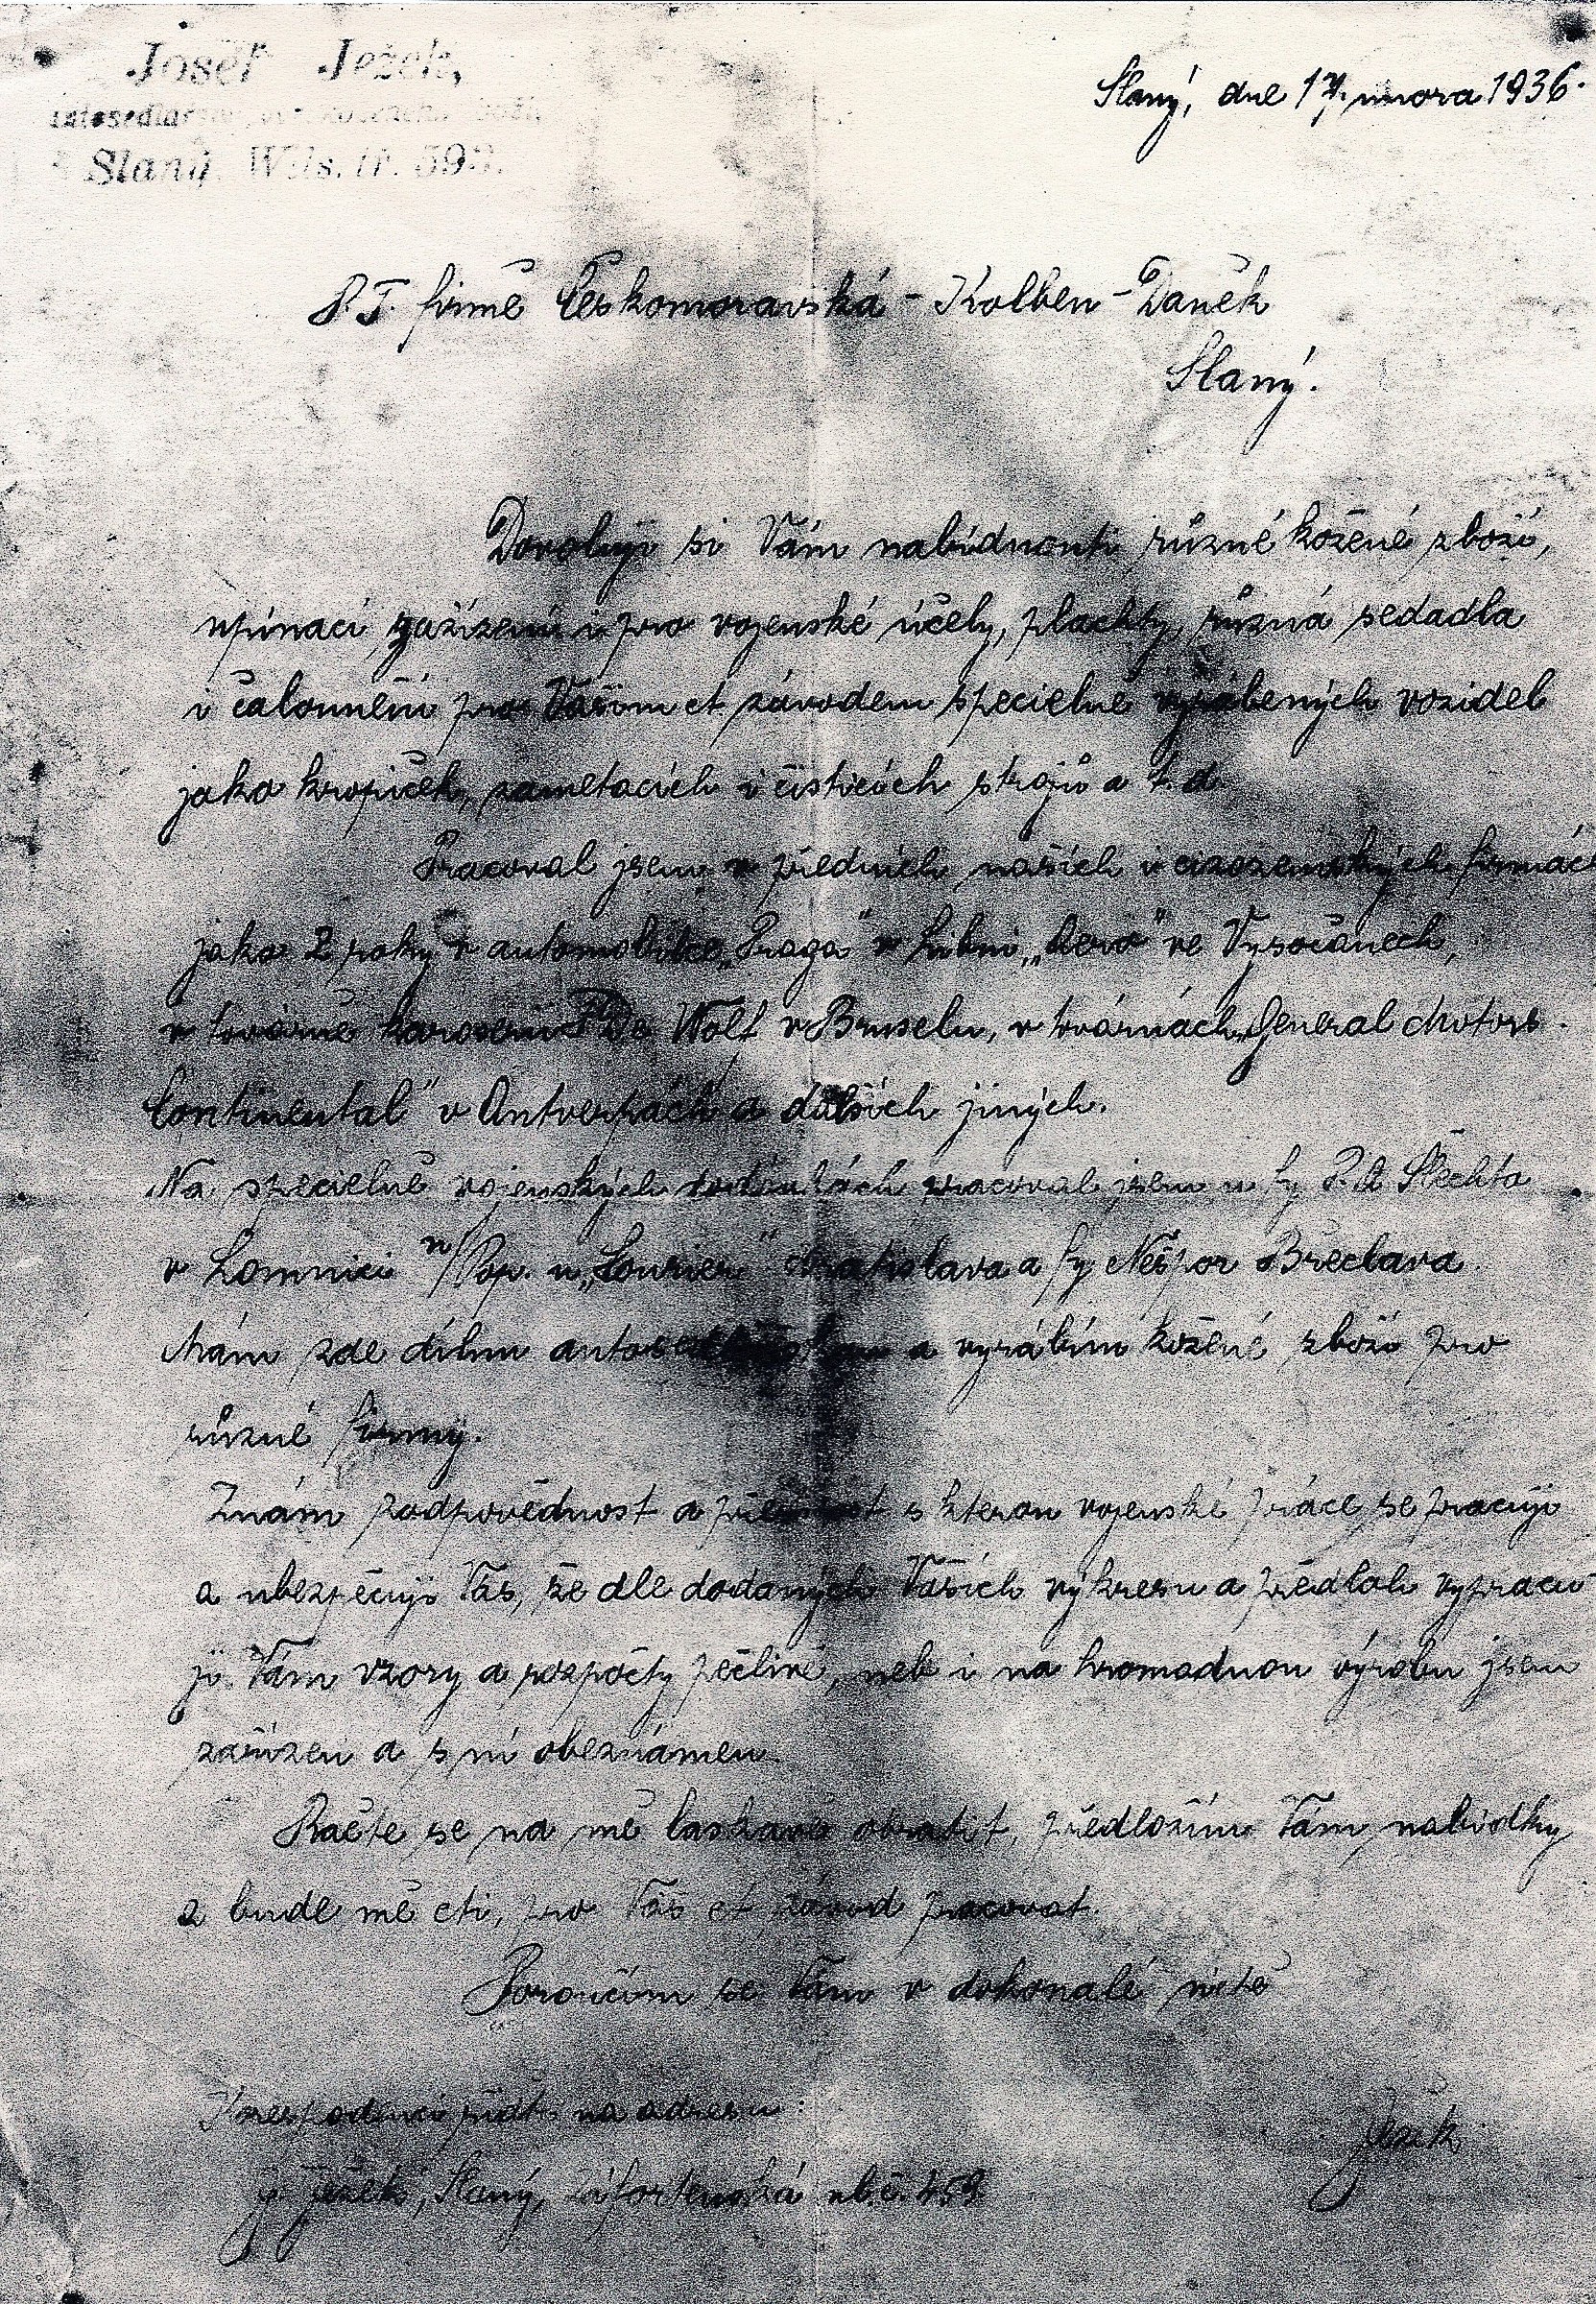 Josef Ježek,
Slaný, Wils. tř. 593.
Slaný, dne 17. února 1936.
P. T. firmě Českomoravská - Kolben - Daněk
Slaný.
Dovoluji si Vám nabídnouti různé kožené zboží,
upínací zařízení i pro vojenské účely, plachty, různá sedadla
i čalounění pro Vašim ct závodem specielně vyráběných vozidel
jako kropiček, zametacích i čisticích strojů a t. d.
Pracoval jsem v předních našich i cizozemských firmác
jako 2 roky v automobilce „Praga" v Libni, „Aero" ve Vysočanech,
v továrně karoserií De Wolf v Bruselu, v továrnách „General Motors
Continental" v Antverpách a dalších jiných.
Na specielně vojenských dodávkách pracoval jsem u fy P. A. Šlechta
v Lomnici n/Pop. u Bratislava a fy Nešpor Břeclava.
Mám zde dílnu a vyrábím kožené zboží pro
různé firmy.
Znám podpovědnost a přesnost s kterou vojenské práce se pracuji
a ubezpěčuji Vás, že dle dodaných Vašich výkresu a předloh vypracu
ji Vám vzory a rozpočty pečlivě, neb i na hromadnou výrobu jsem
zařízen a s ní obeznámen.
Račte se na mě laskavě obratit, předložím Vám nabídky
a bude mě cti, pro Váš ct závod pracovat.
Poroučím se Vám v dokonalé úctě
Ježek
na adresu:
J. Ježek, Slaný,